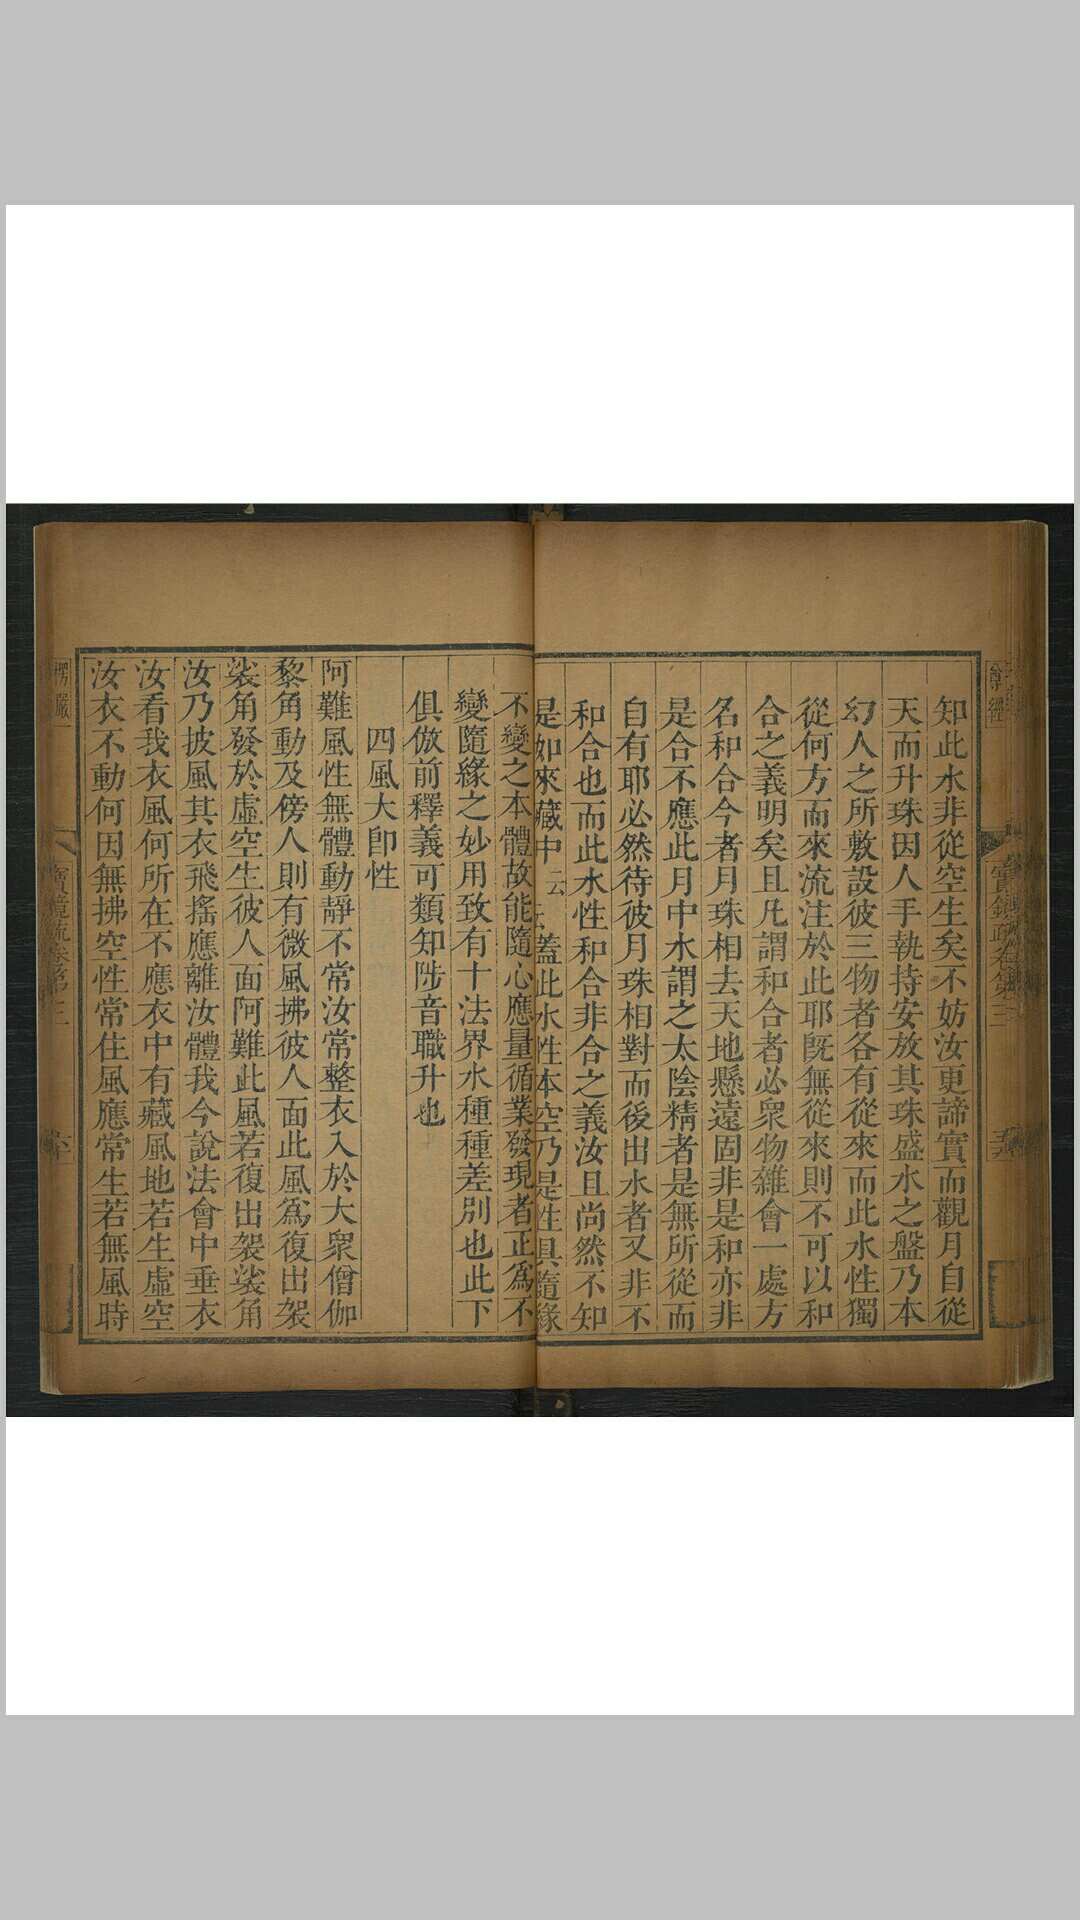 知此水非從空生矣不妨汝更諦實而觀月自從
天而升珠因人手執持安放其珠盛水之盤乃本
幻人之所敷設彼三物者各有從來而此水性獨
從何方而來流注於此耶旣無從來則不可以和
合之義明矣且凡謂和合者必衆物雜會一處方
名和合今者月珠相去天地懸遠固非是和亦非
是合不應此月中水謂之太陰精者是無所從而
自有耶必然待彼月珠相對而後出水者又非不
和合也而此水性和合非合之義汝且尚然不知
是如來藏中云云蓋此水性本空乃是性具隨緣
不變之本體故能隨心應量循業發現者正爲不
變隨緣之妙用致有十法界水種種差別也此下
俱倣前釋義可類知陟音職升也
四風大卽性
阿難風性無體動靜不常汝常整衣入於大衆僧伽
黎角動及傍人則有微風拂彼人面此風爲復出袈
裟角發於虛空生彼人面阿難此風若復出袈裟角
汝乃披風其衣飛搖應離汝體我今說法會中垂衣
汝看我衣風何所在不應衣中有藏風地若生虛空
汝衣不動何因無拂空性常住風應常生若無風時
楞嚴
寶鏡疏卷第三
六